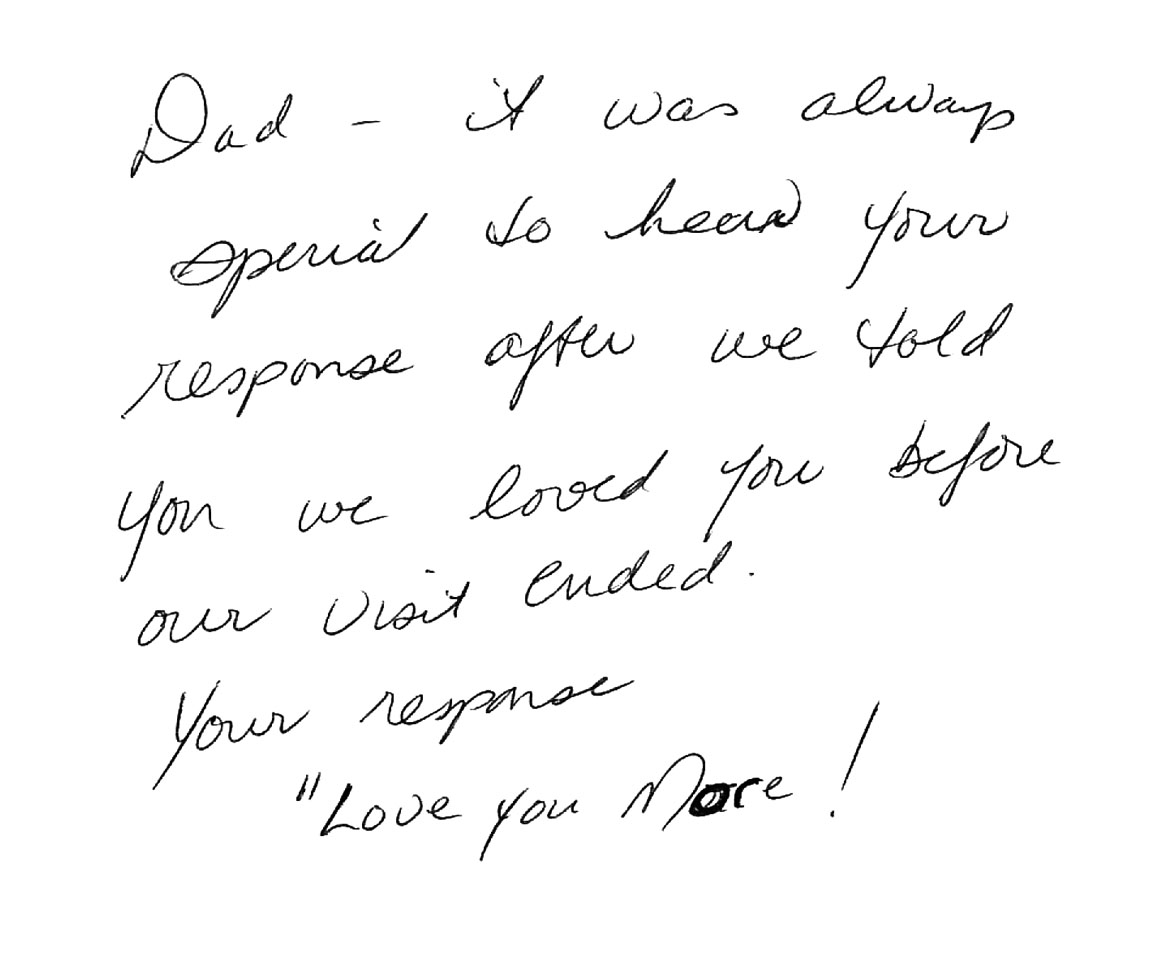 Dad - it was always
special to hear your
response after we told
you we loved you before
our visit ended.
Your response
"Love you More!